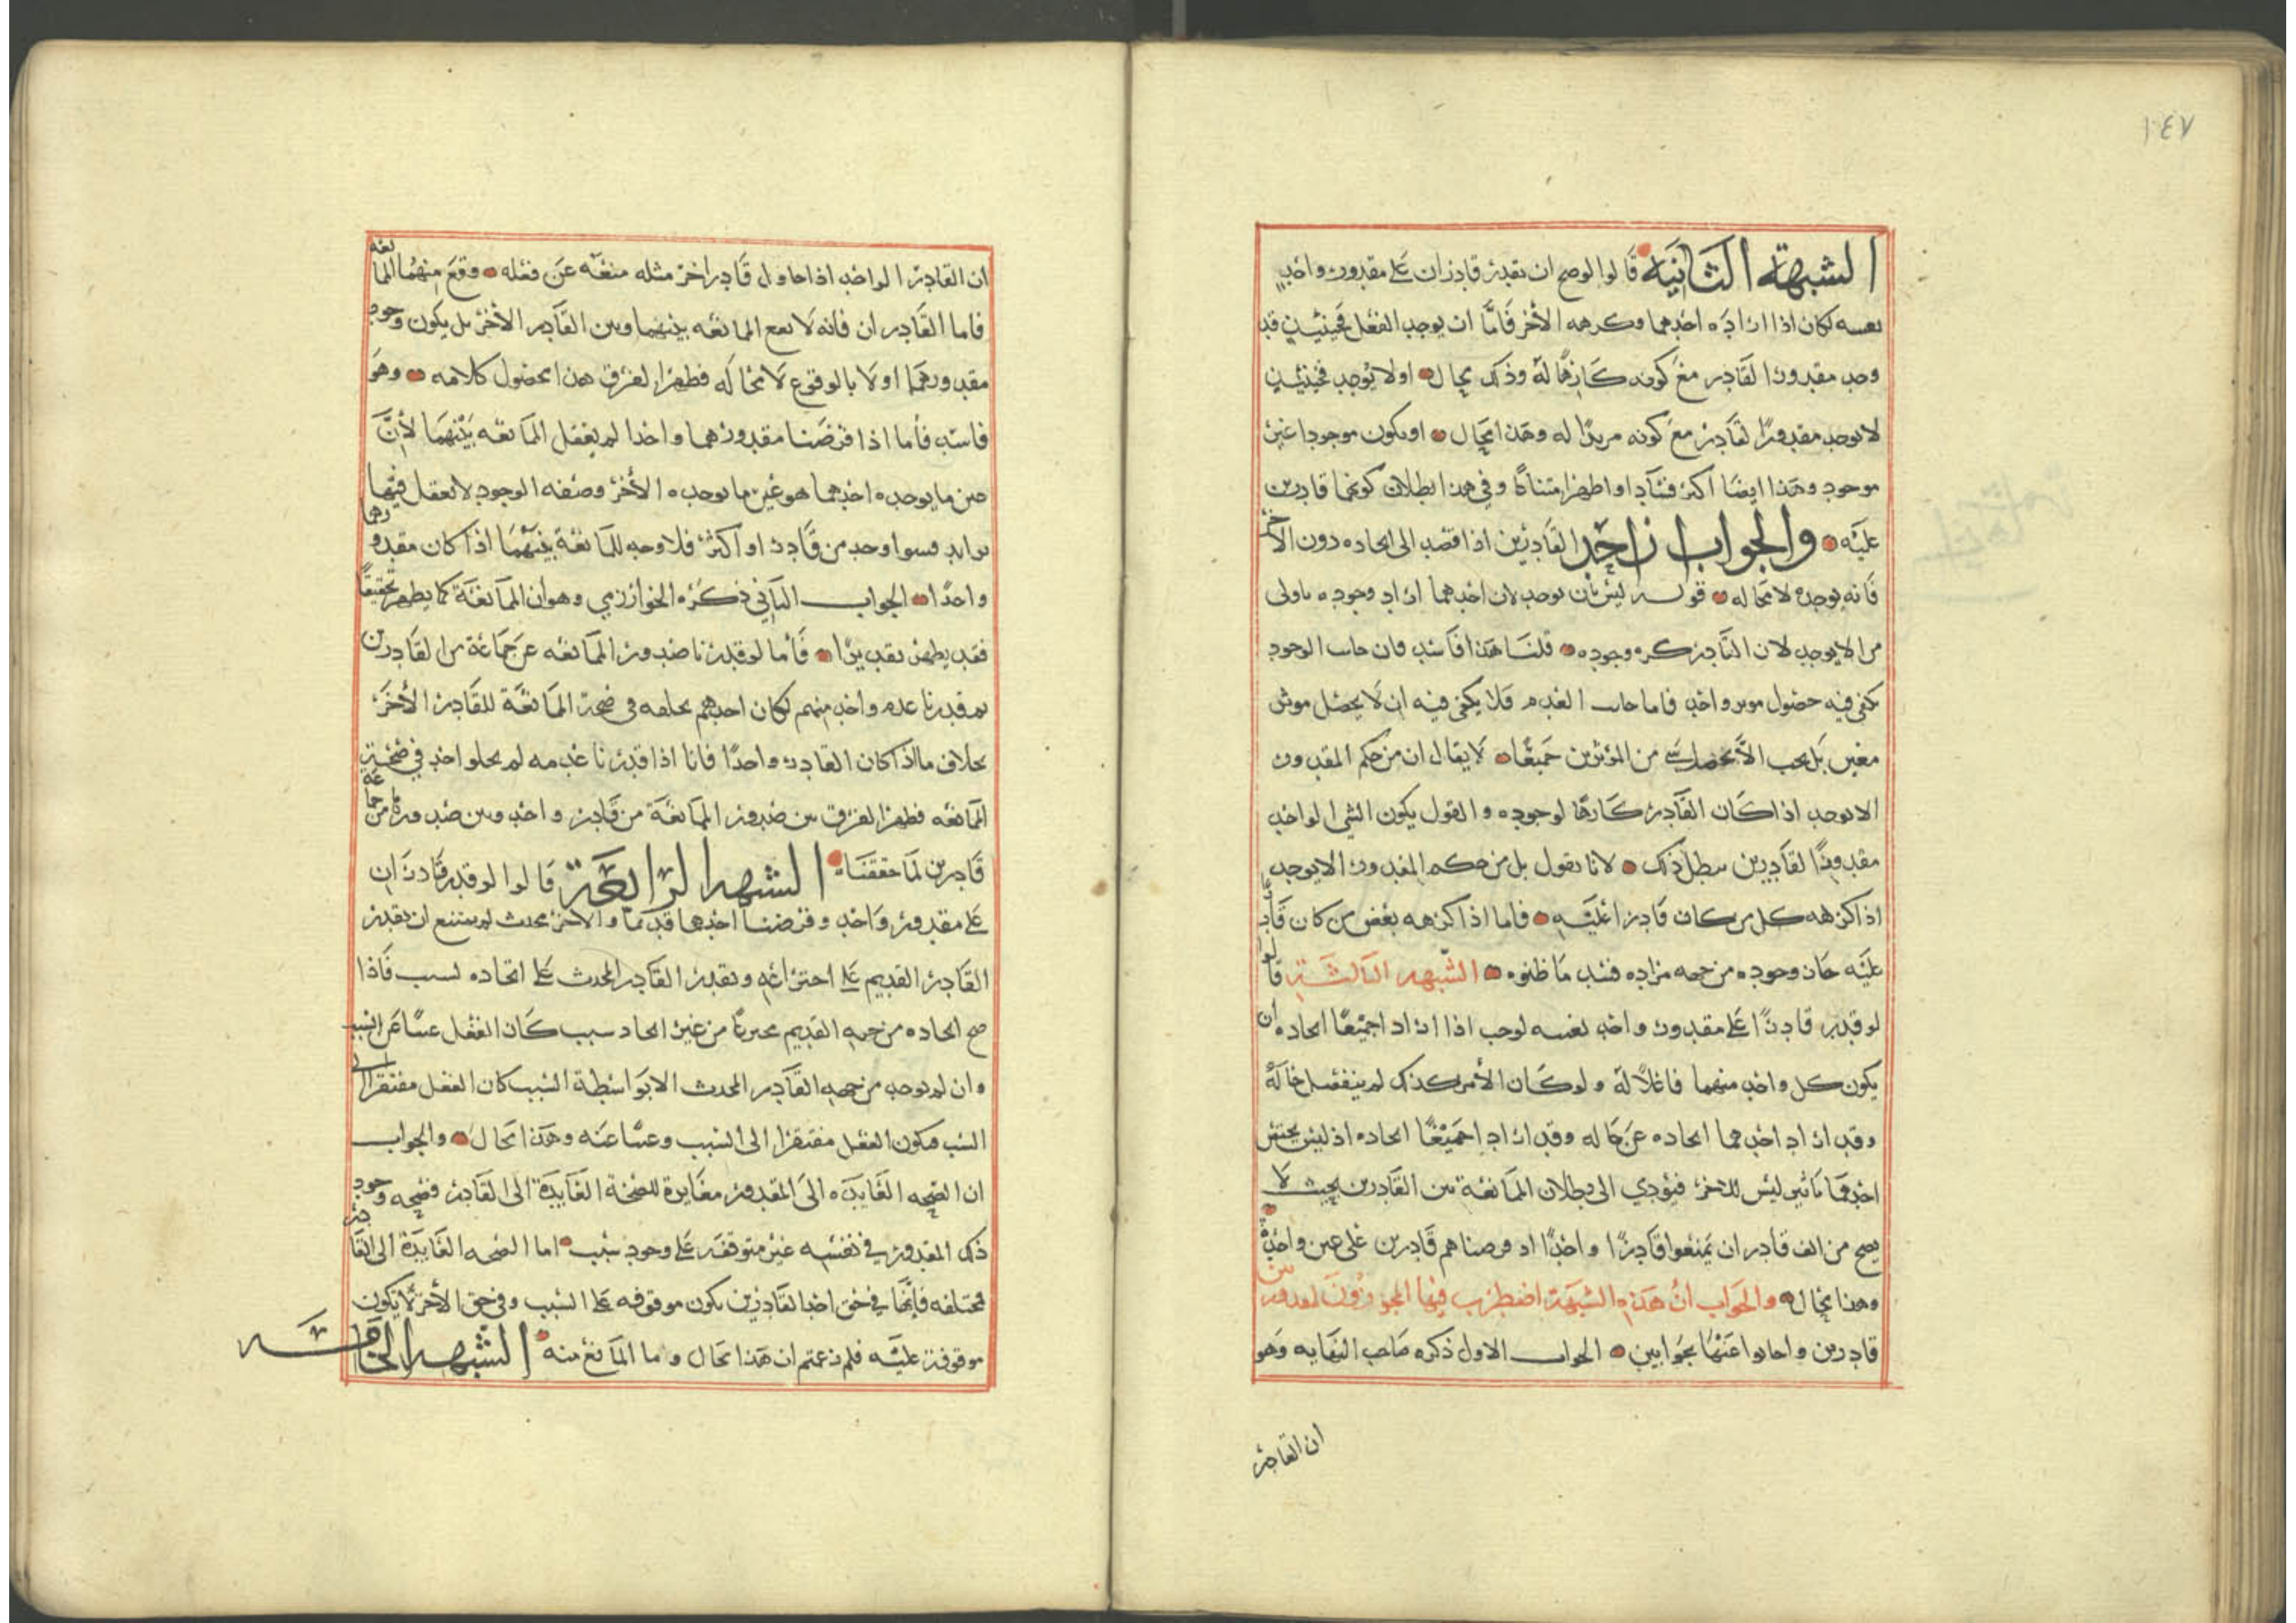 ١٤٧
الشبهة الثانية قالوا لو صح ان يقدر قادران على مقدور واحد
بعينه لكان اذا اراده احدهما وكرهه الآخر فاما ان يوجد الفعل فحينئذٍ قد
وجد مقدور القادر مع كونه كارهًا له وذلك محال او لا يوجد فحينئذٍ
لا يوجد مقدورًا لقادر مع كونه مريدًا له وهذا محال او يكون موجودا غير
موجود وهذا ايضا اكثر فسادا واظهر تناقضًا وفي هذا بطلان كونهما قادرين
عليه والجواب ان احد القادرين اذا قصد الى ايجاده دون الآخر
فانه يوجده لا محاله قوله ليس بأن يوجد لان احدهما اراد وجوده باولى
من الا يوجد لان القادر كره وجوده قلنا هذا فاسد فان جانب الوجود
يكفي فيه حصول موثر واحد فاما جانب العدم فلا يكفي فيه ان لا يحصل موثر
معين بل يجب الا يحصل شي من المؤثرين جميعًا لا يقال ان من حكم المقدور
الا يوجد اذا كان القادر كارها لوجوده والقول بكون الشي الواحد
مقدورًا لقادرين يبطل ذلك لانا نقول بل من حكم المقدور الا يوجد
اذا كرهه كل من كان قادرا عليه فاما اذا كرهه بعض من كان قادرا
عليه جاز وجوده من جهه مراده فسد ما ظنوه الشبهه الثالثة قالوا
لو قدر قادرًا على مقدور واحد بعينه لوجب اذا اراد اجميعًا ايجاده ان
يكون كل واحد منهما فاعلاً له ولو كان الأمر كذلك لم ينفصل حاله
وقد اراد احدهما ايجاده عن حاله وقد اراد اجميعًا ايجاده اذ ليس يختص
احدهما تاثير ليس للاخر فيؤدي الى بطلان الممانعة بين القادرين بحيث لا
يصح من الف قادر ان يمنعوا قادرًا واحدًا اذ فرضناهم قادرين على عين واحدة
وهذا محال والجواب ان هذه الشبهة اضطرب فيها المجوزون لمقدور بين
قادرين واجابوا عنها بجوابين الجواب الاول ذكره صاحب النهايه وهو
ان القادر
ان القادر الواحد اذا حاول قادر اخر مثله منعه عن فعله وقع منهما الممانعه
فاما القادران فانه لا يقع الممانعه بينهما وبين القادر الأخر بل يكون وجود
مقدورهما اولا بالوقوع لا محاله فظهر الفرق هذا محصول كلامه وهو
فاسد فأما اذا فرضنا مقدورهما واحدا لم يعقل الممانعه بينهما لأن
عين ما يوجده احدهما هو عين ما يوجده الأخر وصفه الوجود لا يعقل فيها
تزايد فسوا وجد من قادر او اكثر فلا وجه للمانعة بينهما اذا كان مقدورهما
واحدًا الجواب الثاني ذكره الخوارزمي وهو ان الممانعة كما يظهر تحقيقًا
فقد يظهر تقديرًا فأما لو قدرنا صدور الممانعه عن جماعة من القادرين
ثم قدرنا عدم واحد منهم لكان احدهم يخلفه في صحة الممانعة للقادر الأخر
بخلاف ما اذا كان القادر واحدًا فانا اذا قدرنا عدمه لم يخلو احد في صحة
الممانعه فظهر الفرق بين صدور الممانعة من قادر واحد وبين صدورها من جماعه
قادرين لما حققناه الشبهه الرابعة قالوا لو قدر قادران
على مقدور واحد وفرضنا احدهما قديما والاخر محدث لم يمتنع ان يقدر
القادر القديم على اختراعه ويقدر القادر المحدث على ايجاده لسبب فاذا
صح ايجاده من جهه القديم مخترعًا من غير ايجاد سبب كان الفعل غنيًا عن السبب
وان لم يوجد من جهه القادر المحدث الا بواسطة السبب كان الفعل مفتقرا الى
السبب فيكون الفعل مفتقرا الى السبب وغنيًا عنه وهذا محال والجواب
ان الصحه العايده الى المقدور مغايرة للصحة العايدة الى القادر فصحه وجود
ذلك المقدور في نفسه غير متوقفه على وجود سبب اما الصحه العايدة الى القادر
مختلفه فإنها في حق احد القادرين يكون موقوفه على السبب وفي حق الأخر لا يكون
موقوفة عليه فلم زعمتم ان هذا محال وما المانع منه الشبهه الخامسه